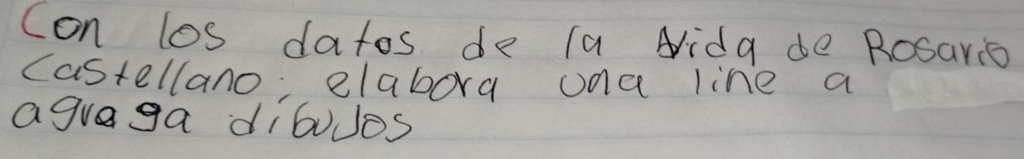 Con los datos de la Vida de Rosario
Castellano, elabora una line a
agraga dibujos